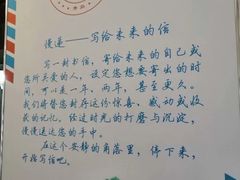 慢递——写给未来的信
写一封书信,寄给未来的自己或
您所关爱的人,设定您想要寄出的时
间,可以是一年、两年,甚至更久。
我们将替您封存这份惊喜、感动或收
获的记忆。经过时光的打磨与沉淀,
慢慢送达您的手中。
在这个安静的角落里,停下来,
开始写信吧。